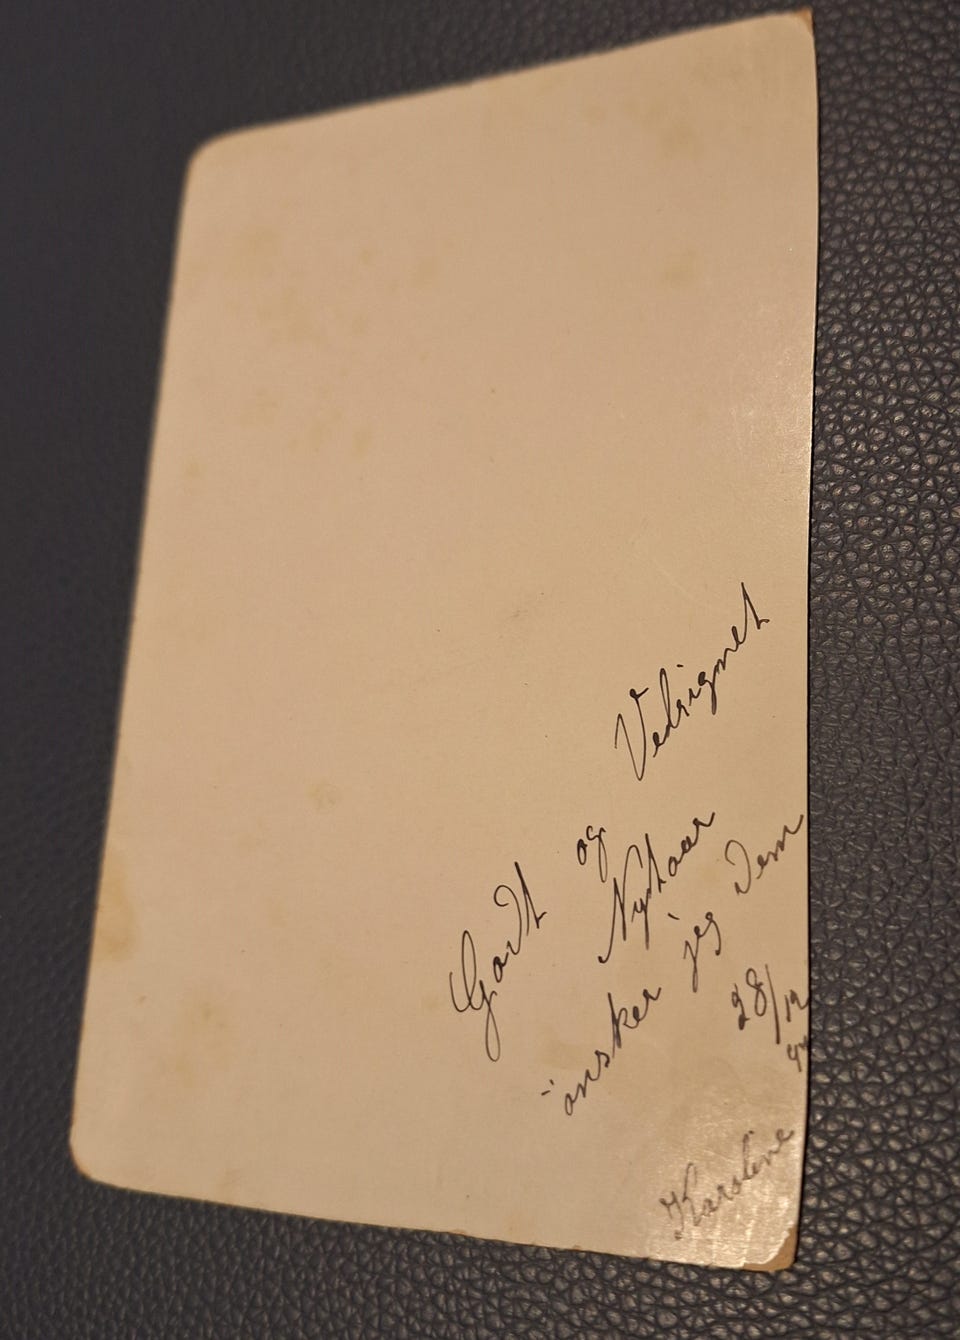 Godt og Velsignet
Nyttaar
önsker jeg Dem
28/12
94
Karoline